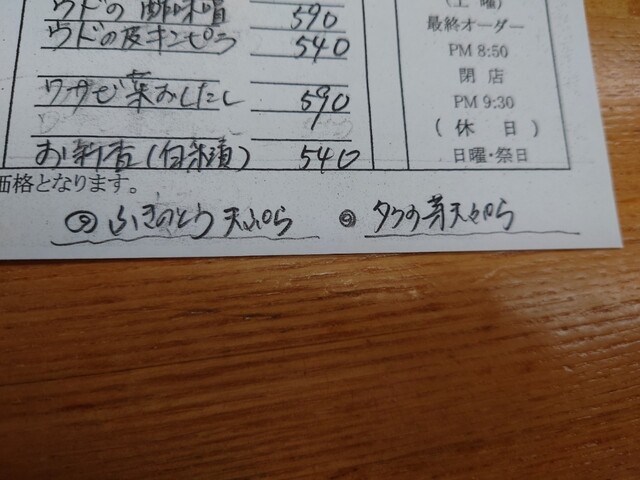 ウドの酢味噌 590
ウドの皮キンピラ 540
ワサビ菜おしたし 590
お新香(白菜漬) 540
価格となります。
ふきのとう天ぷら
タラの芽天ぷら
(土曜)
最終オーダー
PM 8:50
閉店
PM 9:30
(休日)
日曜・祭日